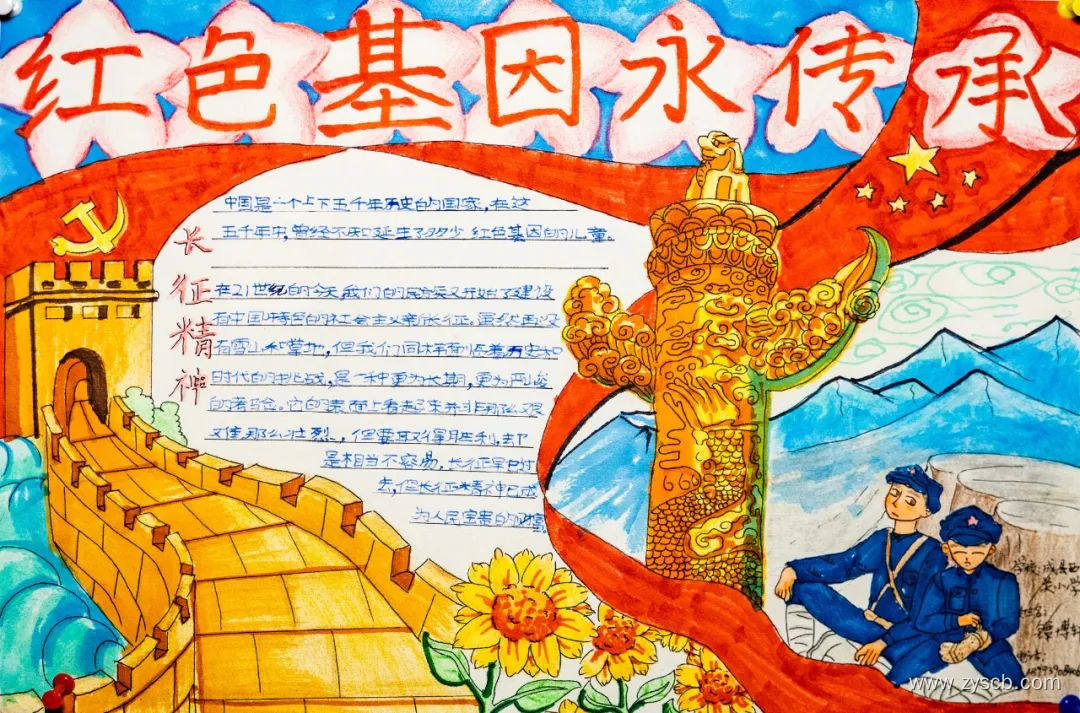 红色基因永传承
长征精神
中国是一个上下五千年历史的国家,在这
五千年中,曾经不知诞生了多少红色基因的儿童。
在21世纪的今天我们的民族又开始了建设
有中国特色的社会主义新长征。虽然再没
有雪山和草地,但我们同样面临着历史和
时代的挑战,是一种更为长期,更为严峻
的考验。它的表面上看起来并非那么艰
难那么壮烈,但要取得胜利,却
是相当不容易,长征早已过
去,但长征精神已成
为人民宝贵的财富
学校:成县西
关小学
www.zyscb.com